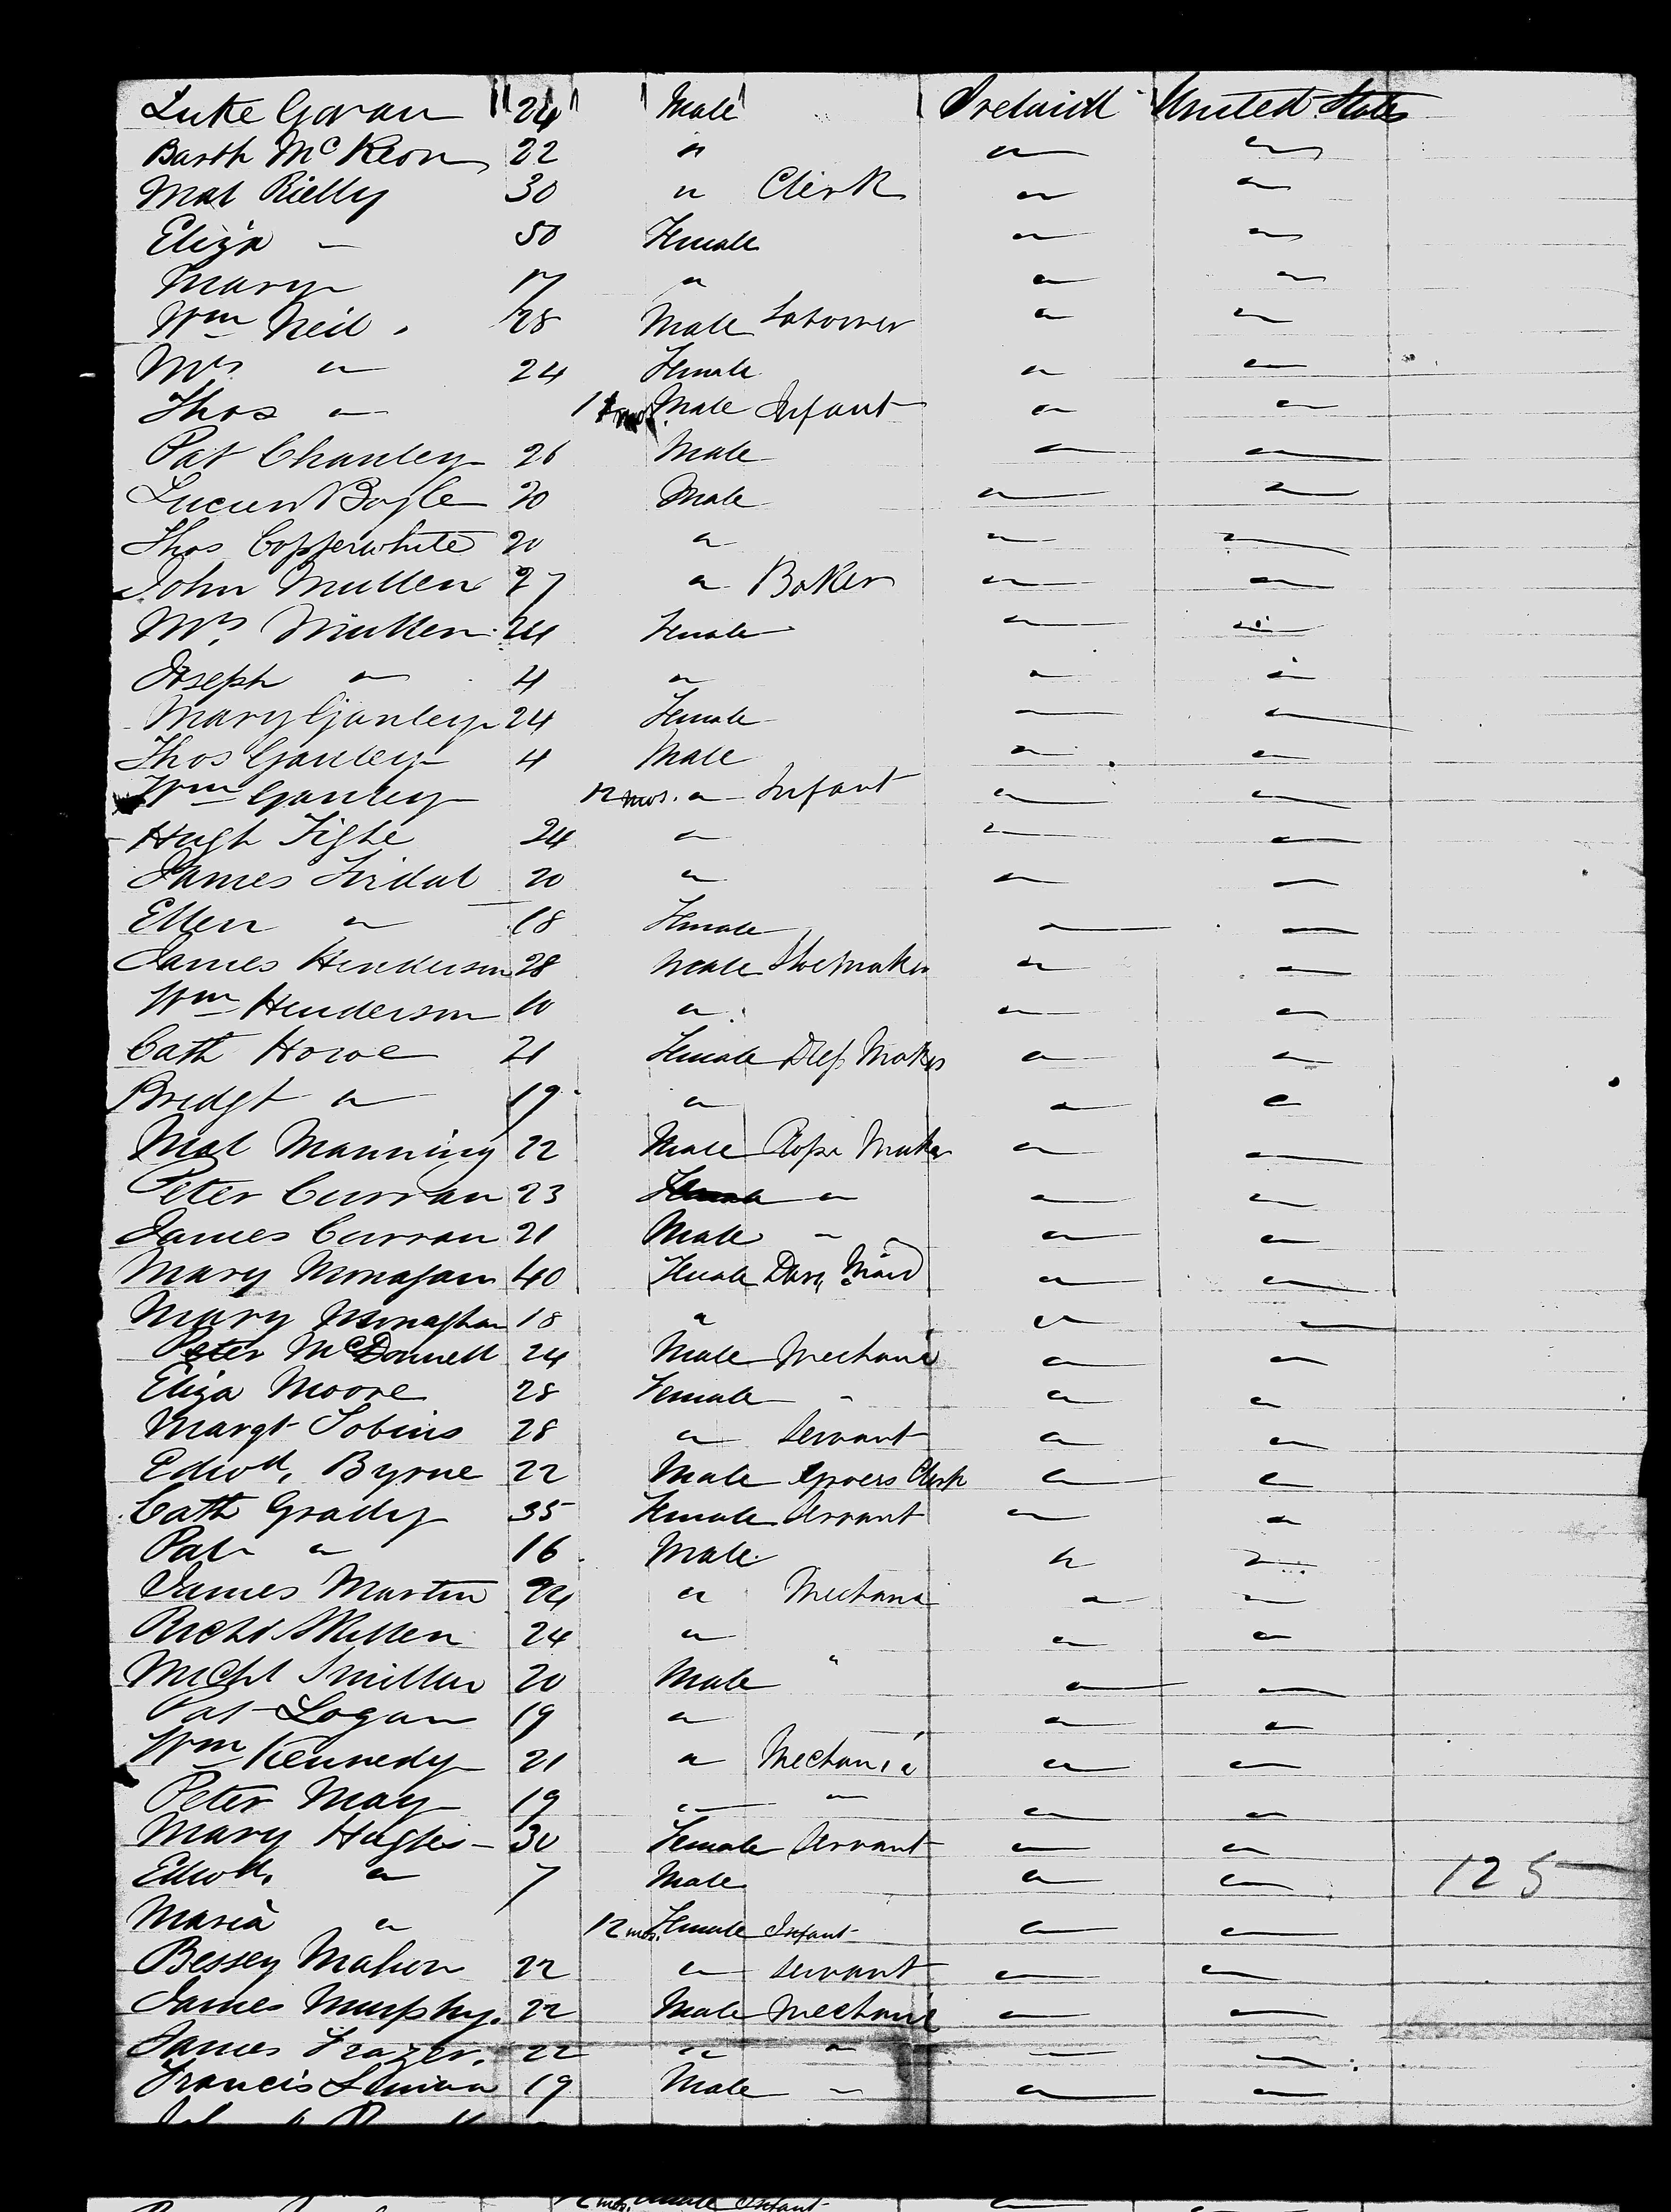 Luke Govan 24 Male Ireland United States
Barth McKeon 22 "
Mat Rielly 30 " Clerk
Eliza " 50 Female
Mary 17 "
Wm Neil 28 Male Labourer
Mrs " 24 Female
Thos " 11 mos. Male Infant
Pat Chanley 26 Male
Boyle 20 Male
Thos Copperwhite 20 "
John Mullen 27 " Baker
Mrs Mullen 24 Female
Joseph " 4 "
Mary Ganley 24 Female
Thos Ganley 4 Male
Wm Ganley 12 mos. " Infant
Hugh Tighe 24 "
James 20 "
Ellen " 18 Female
James Henderson 28 Male Shoemaker
Wm Henderson 10 "
Cath Howe 21 Female Dress Maker
Bridgt " 19 "
Mat Manning 22 Male Rope Maker
Peter Curran 23 "
James Curran 21 Male "
Mary Monagan 40 Female Dary Maid
Mary Monaghan 18 "
Peter McDonnell 24 Male Mechanic
Eliza Moore 28 Female "
Margt Tobins 28 " Servant
Edwd. Byrne 22 Male Grocers Clerk
Cath Grady 35 Female Servant
Pat " 16 Male
James Martin 24 " Mechanic
Richd Mullen 24 "
Michl 20 Male "
Pat Logan 19 "
Wm Kennedy 21 " Mechanic
Peter May 19 " "
Mary Hughes 30 Female Servant
Edwd. " 7 Male 125
Maria " 12 mos. Female Infant
Bessey Mahon 22 " Servant
James Murphy. 22 Male Mechanic
James Frazer. 22 " "
Francis 19 Male "
12 mos. Female Infant